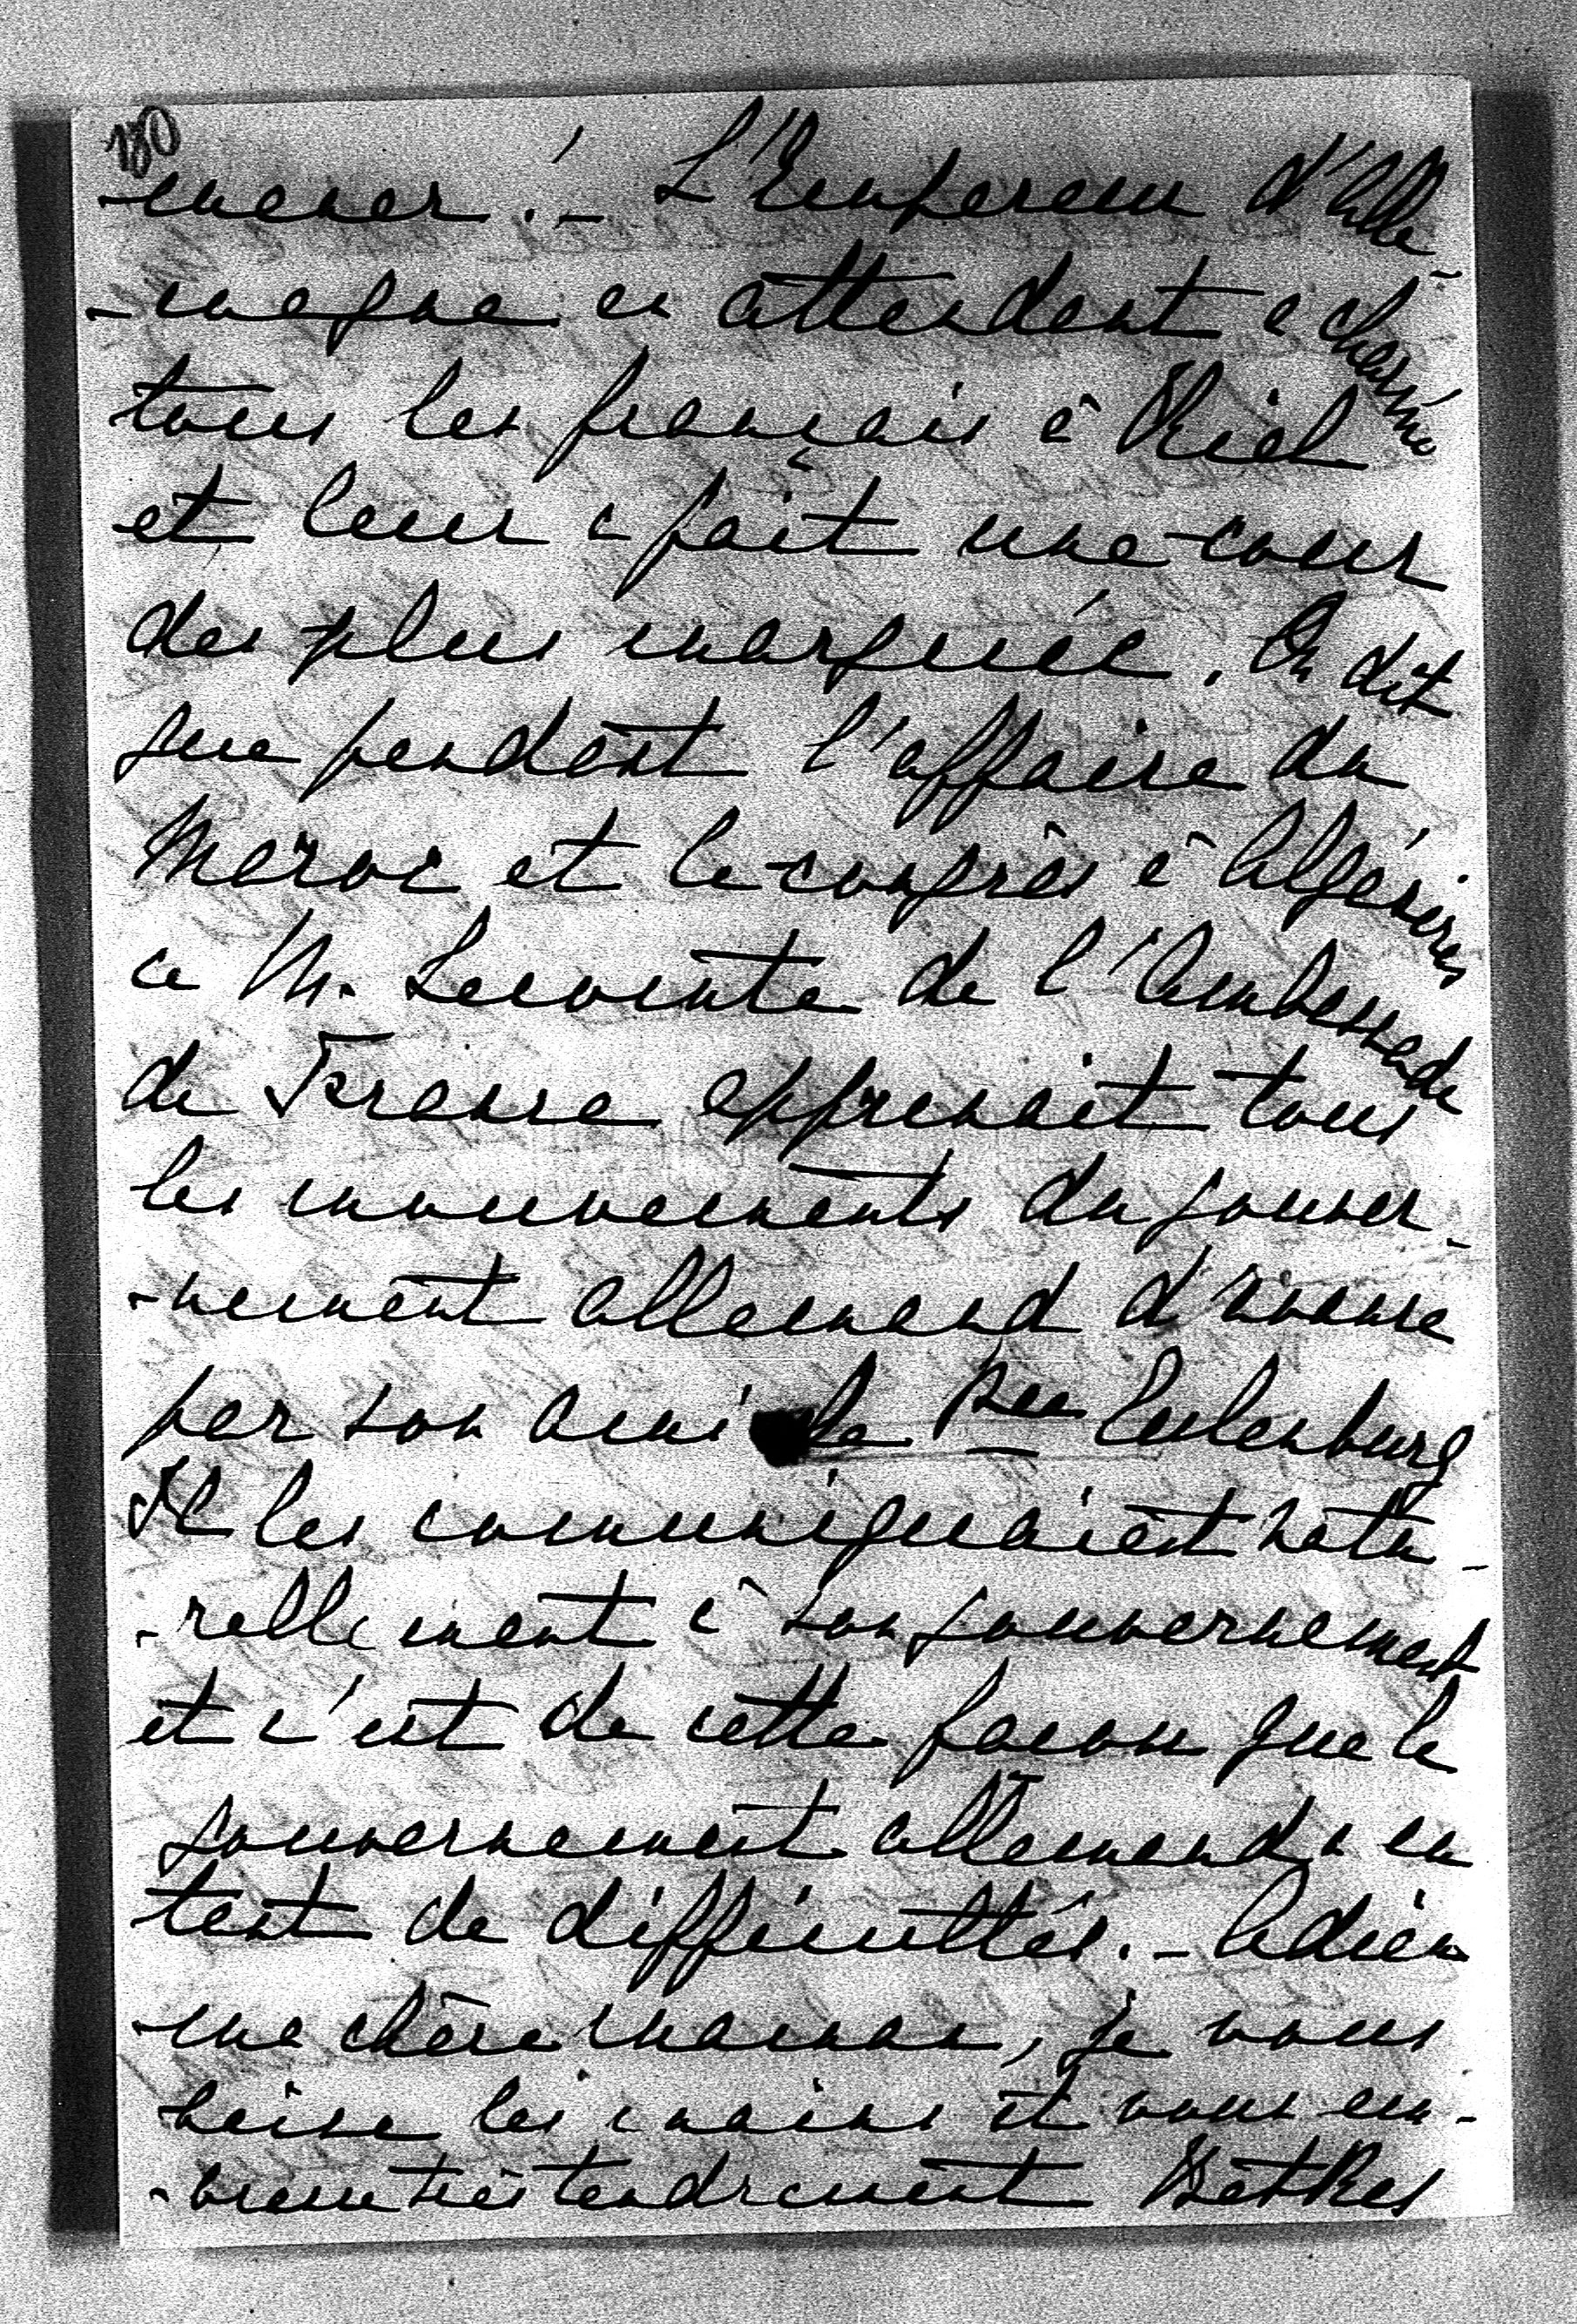 180
-mener. ! - L'Empereur d'Alle-
-magne en attendant a charmé
tous les français à Kiel
et leur a fait une cour
des plus marquée. On dit
que pendant l'affaire du
Maroc et le congrès à Algésiras
ce M. Lecomte de l'Ambassade
de France apprenait tous
les mouvements du gouver-
-nement allemand d'avance
par son ami le Pce Eulenburg
Il les communiquaient natu-
-rellement à son gouvernement
et c'est de cette facon que le
gouvernement allemand a eu
tant de difficultés. - Adieu
ma chère maman, je vous
baise les mains et vous em-
-brasse très tendrement